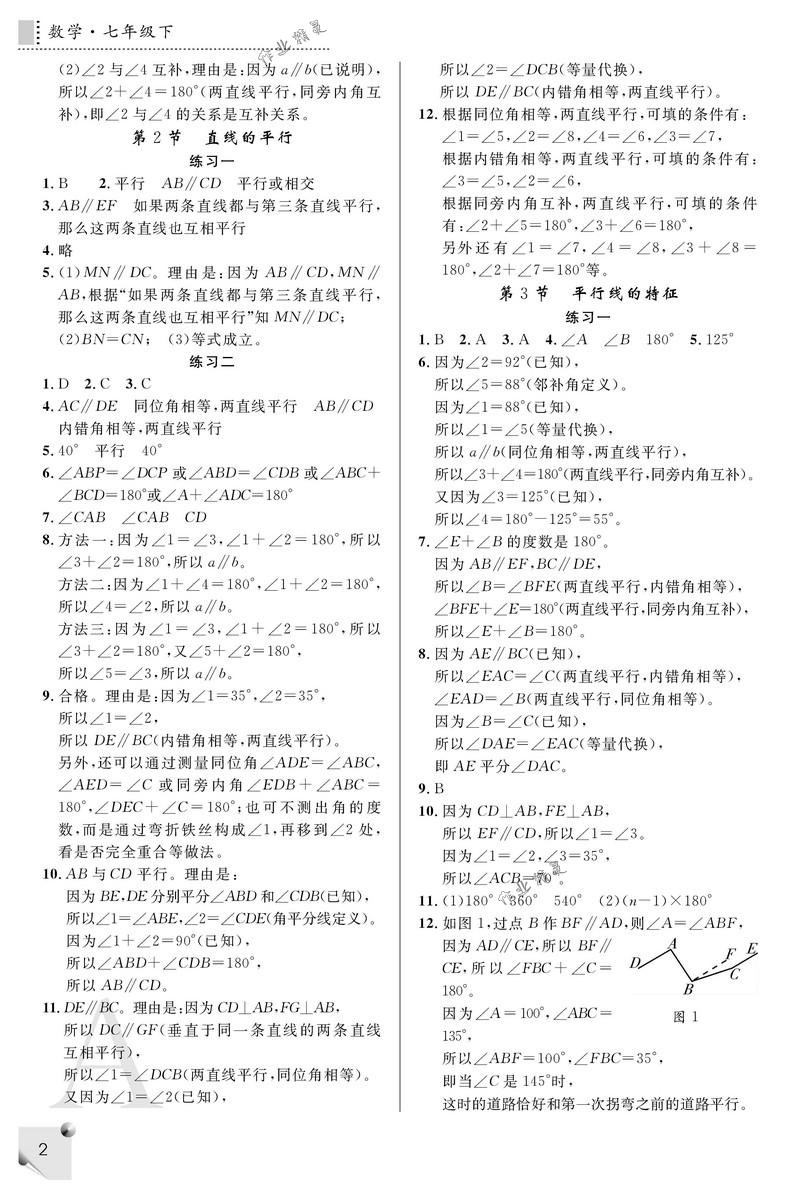 数学·七年级下
作业精灵
(2)∠2与∠4互补,理由是:因为a∥b(已说明),
所以∠2+∠4=180°(两直线平行,同旁内角互
补),即∠2与∠4的关系是互补关系。
第2节 直线的平行
练习一
1. B 2. 平行 AB∥CD 平行或相交
3. AB∥EF 如果两条直线都与第三条直线平行,
那么这两条直线也互相平行
4. 略
5. (1)MN∥DC。理由是:因为AB∥CD,MN∥
AB,根据“如果两条直线都与第三条直线平行,
那么这两条直线也互相平行”知MN∥DC;
(2)BN=CN; (3)等式成立。
练习二
1. D 2. C 3. C
4. AC∥DE 同位角相等,两直线平行 AB∥CD
内错角相等,两直线平行
5. 40° 平行 40°
6. ∠ABP=∠DCP或∠ABD=∠CDB或∠ABC+
∠BCD=180°或∠A+∠ADC=180°
7. ∠CAB ∠CAB CD
8. 方法一:因为∠1=∠3,∠1+∠2=180°,所以
∠3+∠2=180°,所以a∥b。
方法二:因为∠1+∠4=180°,∠1+∠2=180°,
所以∠4=∠2,所以a∥b。
方法三:因为∠1=∠3,∠1+∠2=180°,所以
∠3+∠2=180°,又∠5+∠2=180°,
所以∠5=∠3,所以a∥b。
9. 合格。理由是:因为∠1=35°,∠2=35°,
所以∠1=∠2,
所以DE∥BC(内错角相等,两直线平行)。
另外,还可以通过测量同位角∠ADE=∠ABC,
∠AED=∠C或同旁内角∠EDB+∠ABC=
180°,∠DEC+∠C=180°;也可不测出角的度
数,而是通过弯折铁丝构成∠1,再移到∠2处,
看是否完全重合等做法。
10. AB与CD平行。理由是:
因为BE,DE分别平分∠ABD和∠CDB(已知),
所以∠1=∠ABE,∠2=∠CDE(角平分线定义)。
因为∠1+∠2=90°(已知),
所以∠ABD+∠CDB=180°,
所以AB∥CD。
11. DE∥BC。理由是:因为CD⊥AB,FG⊥AB,
所以DC∥GF(垂直于同一条直线的两条直线
互相平行),
所以∠1=∠DCB(两直线平行,同位角相等)。
又因为∠1=∠2(已知),
所以∠2=∠DCB(等量代换),
所以DE∥BC(内错角相等,两直线平行)。
12. 根据同位角相等,两直线平行,可填的条件有:
∠1=∠5,∠2=∠8,∠4=∠6,∠3=∠7,
根据内错角相等,两直线平行,可填的条件有:
∠3=∠5,∠2=∠6,
根据同旁内角互补,两直线平行,可填的条件
有:∠2+∠5=180°,∠3+∠6=180°,
另外还有∠1=∠7,∠4=∠8,∠3+∠8=
180°,∠2+∠7=180°等。
第3节 平行线的特征
练习一
1. B 2. A 3. A 4. ∠A ∠B 180° 5. 125°
6. 因为∠2=92°(已知),
所以∠5=88°(邻补角定义)。
因为∠1=88°(已知),
所以∠1=∠5(等量代换),
所以a∥b(同位角相等,两直线平行),
所以∠3+∠4=180°(两直线平行,同旁内角互补)。
又因为∠3=125°(已知),
所以∠4=180°-125°=55°。
7. ∠E+∠B的度数是180°。
因为AB∥EF,BC∥DE,
所以∠B=∠BFE(两直线平行,内错角相等),
∠BFE+∠E=180°(两直线平行,同旁内角互补),
所以∠E+∠B=180°。
8. 因为AE∥BC(已知),
所以∠EAC=∠C(两直线平行,内错角相等),
∠EAD=∠B(两直线平行,同位角相等)。
因为∠B=∠C(已知),
所以∠DAE=∠EAC(等量代换),
即AE平分∠DAC。
9. B
10. 因为CD⊥AB,FE⊥AB,
所以EF∥CD,所以∠1=∠3。
因为∠1=∠2,∠3=35°,
所以∠ACB=70°。
作业精灵
11. (1)180° 360° 540° (2)(n-1)×180°
12. 如图1,过点B作BF∥AD,则∠A=∠ABF,
因为AD∥CE,所以BF∥
CE,所以∠FBC+∠C=
180°。
因为∠A=100°,∠ABC=
135°,
所以∠ABF=100°,∠FBC=35°,
即当∠C是145°时,
这时的道路恰好和第一次拐弯之前的道路平行。
D A B F C E
图1
A
2